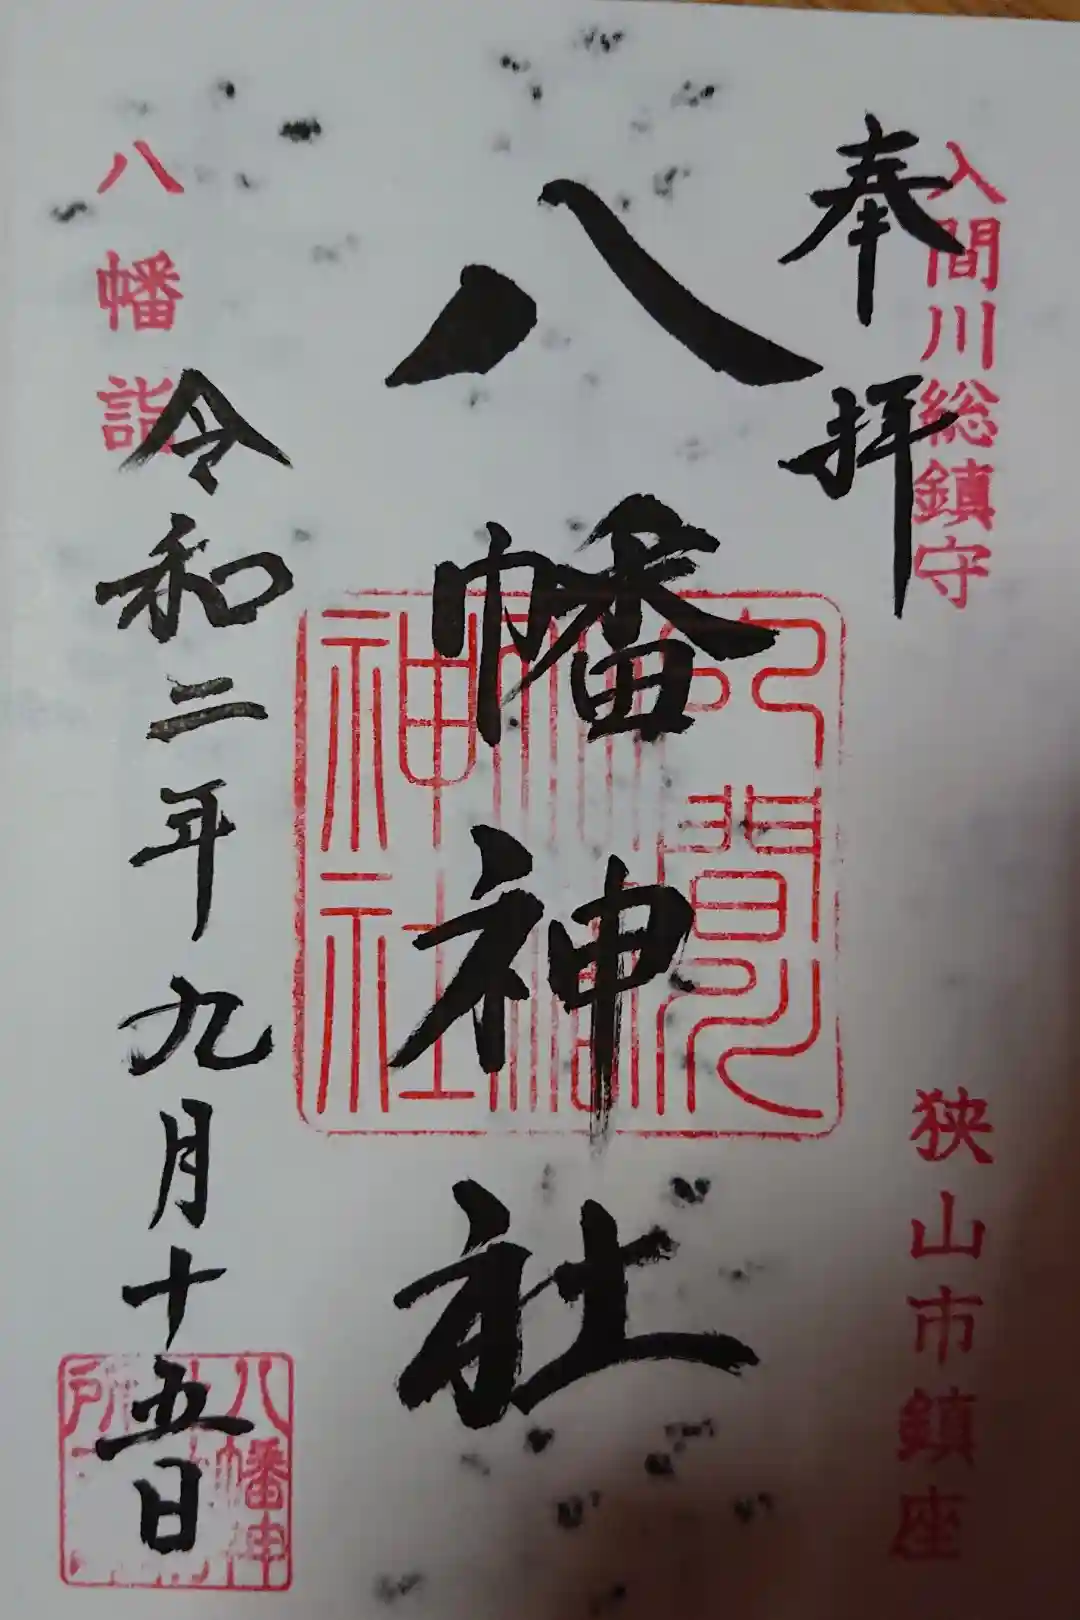 入間川総鎮守
狭山市鎮座
奉拝
八幡神社
神社
八幡詣
令和二年九月十五日
八幡神